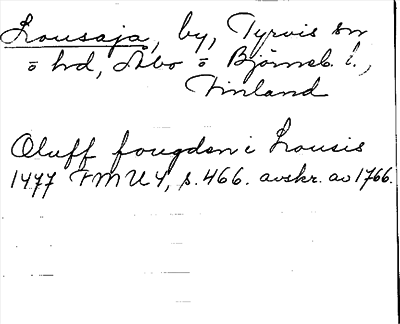 Lousaja, by, Tyrvis sn
o hd, Åbo o Björneb. l.,
Finland
Oluff fougden i Lousis
1477 FMU 4, s. 466. avskr. av 1766.